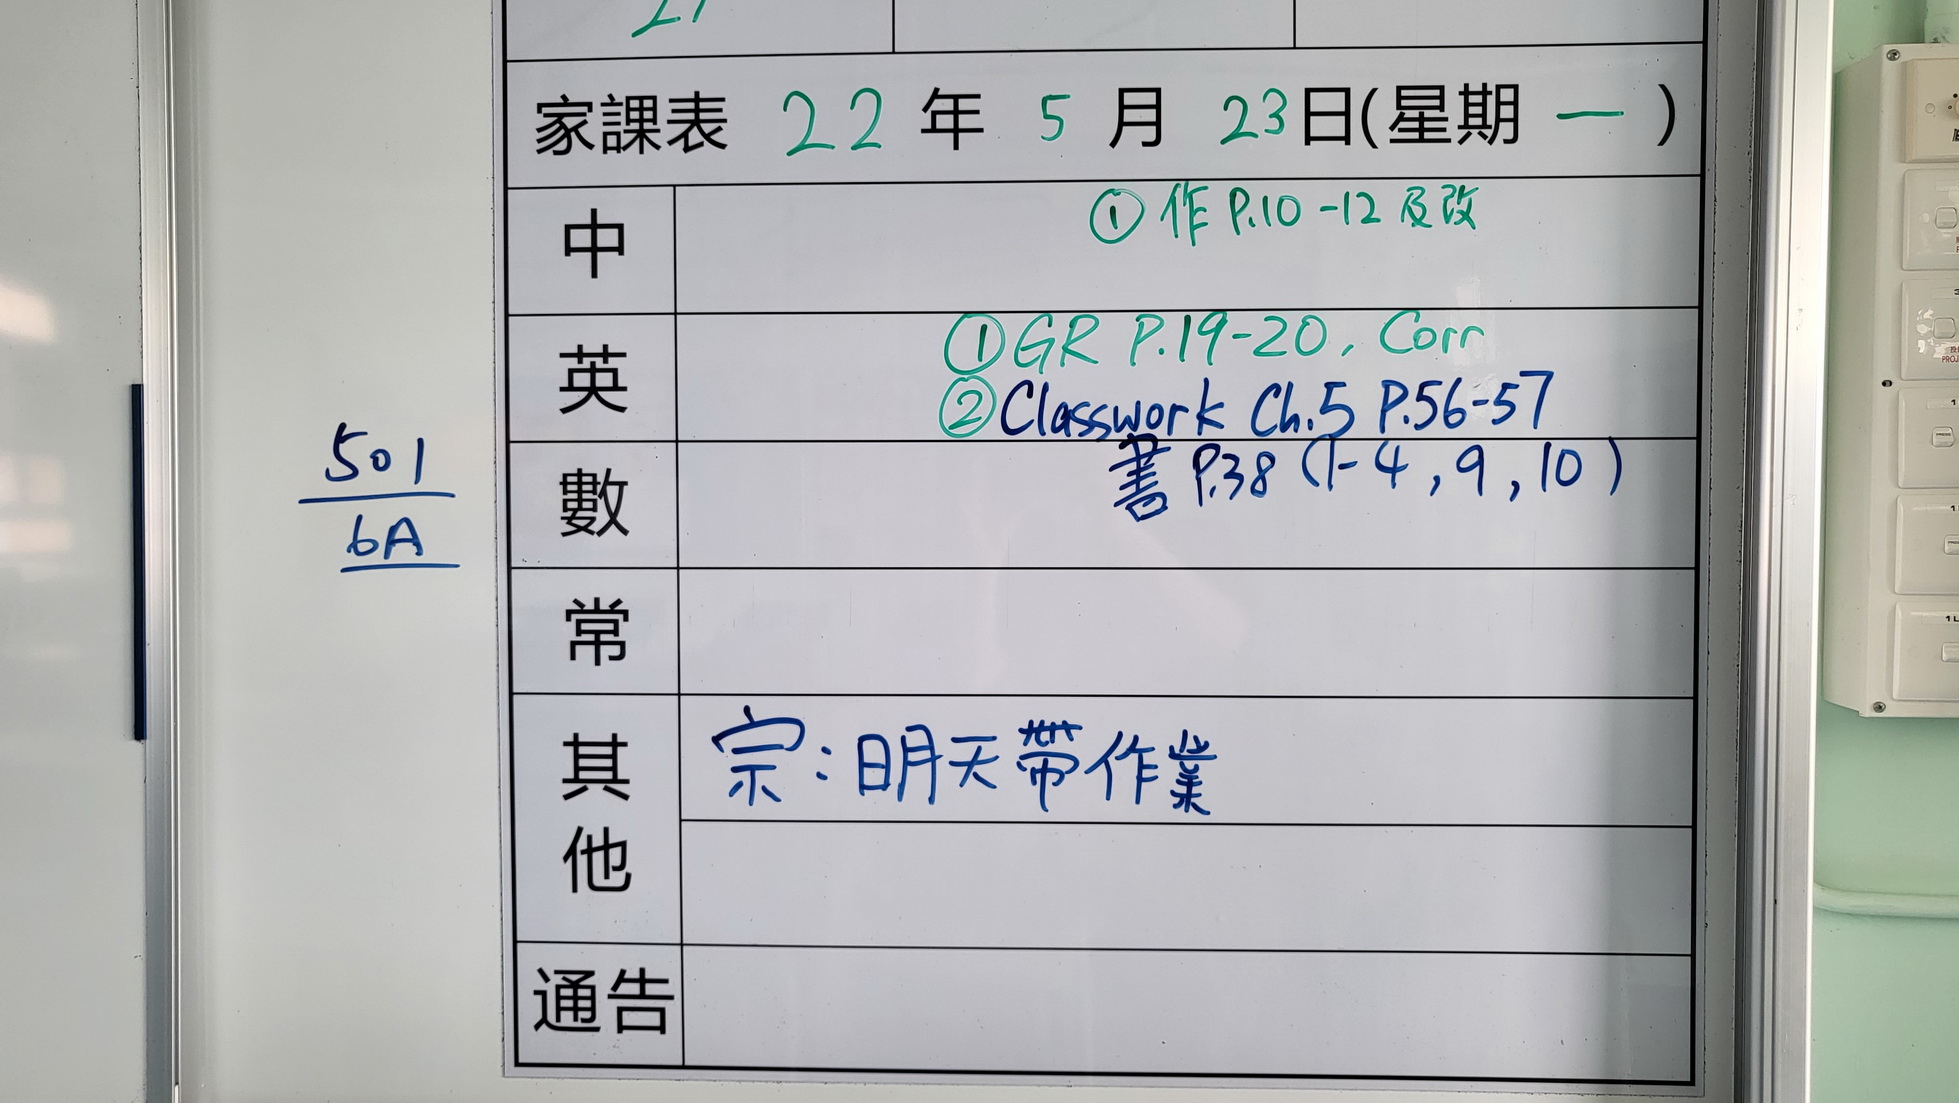 家課表 22 年 5 月 23日(星期 一 )
中
① 作 P.10-12 及改
英
① GR P.19-20, Corr
② Classwork Ch.5 P.56-57
數
書 P.38 (1-4, 9, 10)
常
其他
宗:明天帶作業
通告
501
6A